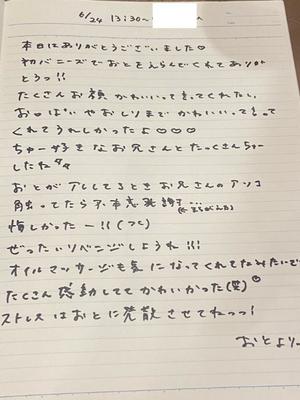 6/24 13:30〜 へ
本日はありがとうございました♡
初バニーズでおとをえらんでくれてありが
とうっ!!
たくさんお顔かわいいって言ってくれたし、
おっぱいやおしりまでかわいいって言って
くれてうれしかったよ♡♡♡
ちゅー好きなお兄さんとたっくさんちゅー
したね
おとが してるときお兄さんのアソコ
触ってたら
悔しかったー!!
ぜったいリベンジしようね!!!
オイルマッサージも気になってくれてたみたいで
たくさん感動しててかわいかった(笑)
ストレスはおとに発散させてねっっ!
おとより